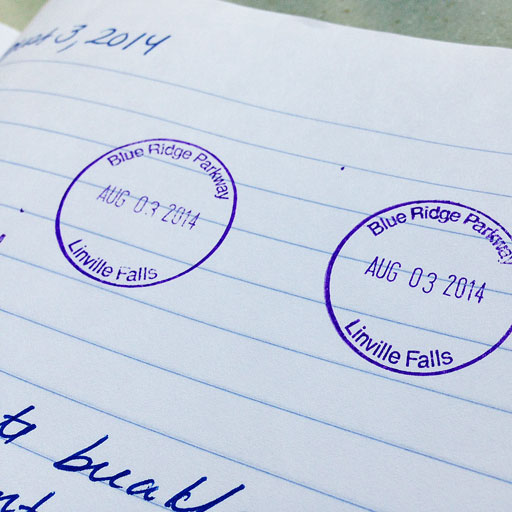 3, 2014
Blue Ridge Parkway
AUG 03 2014
Linville Falls
Blue Ridge Parkway
AUG 03 2014
Linville Falls
to